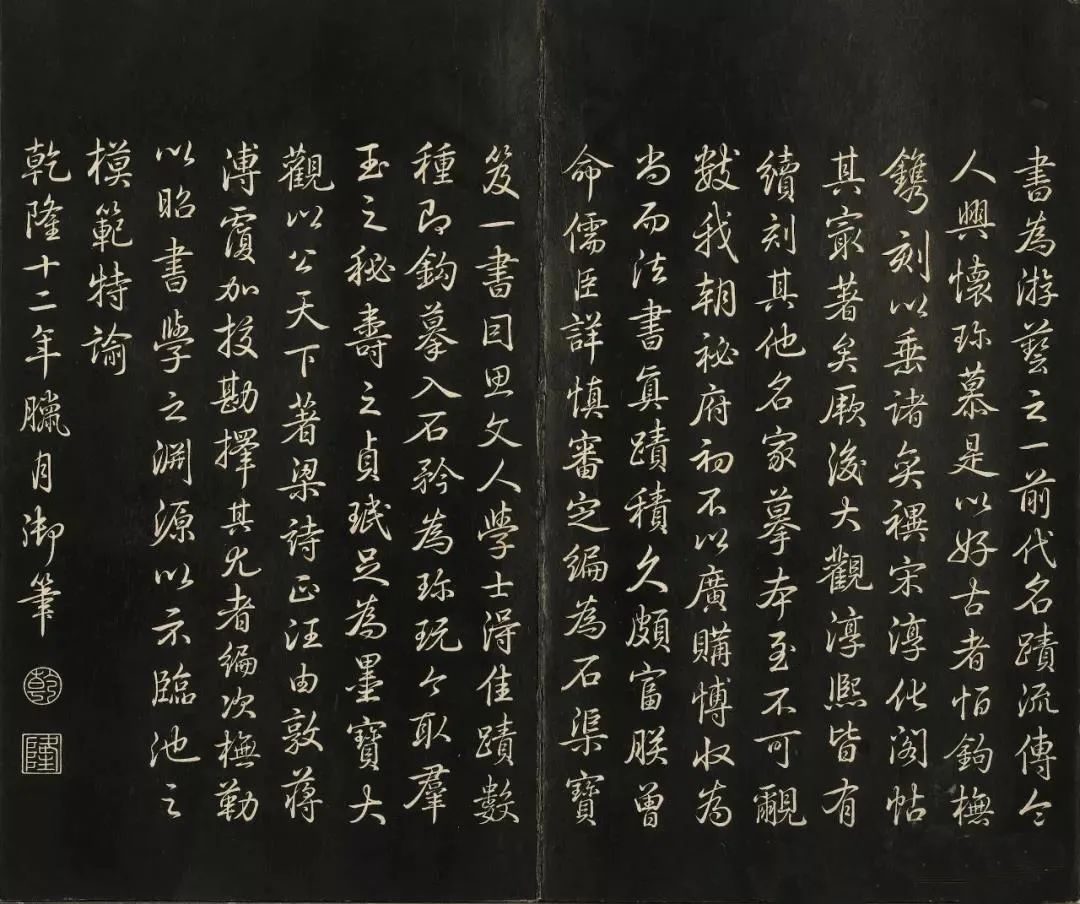 書為游藝之一前代名蹟流傳令
人興懷珎慕是以好古者怕鉤橅
鐫刻以垂諸奕禩宋淳化閣帖
其㝡著矣厥後大觀淳熙皆有
續刻其他名家摹本至不可覼
數我朝祕府初不以廣購博收為
尚而法書真蹟積久頗富朕曾
命儒臣詳慎審定編為石渠寶
笈一書因思文人學士得佳蹟數
種即鉤摹入石矜為珎玩今取羣
玉之秘壽之貞珉足為墨寶大
觀以公天下著梁詩正汪由敦蔣
溥覆加挍勘擇其尤者編次橅勒
以昭書學之淵源以示臨池之
模範特諭
乾隆十二年臘月御筆
乾
隆